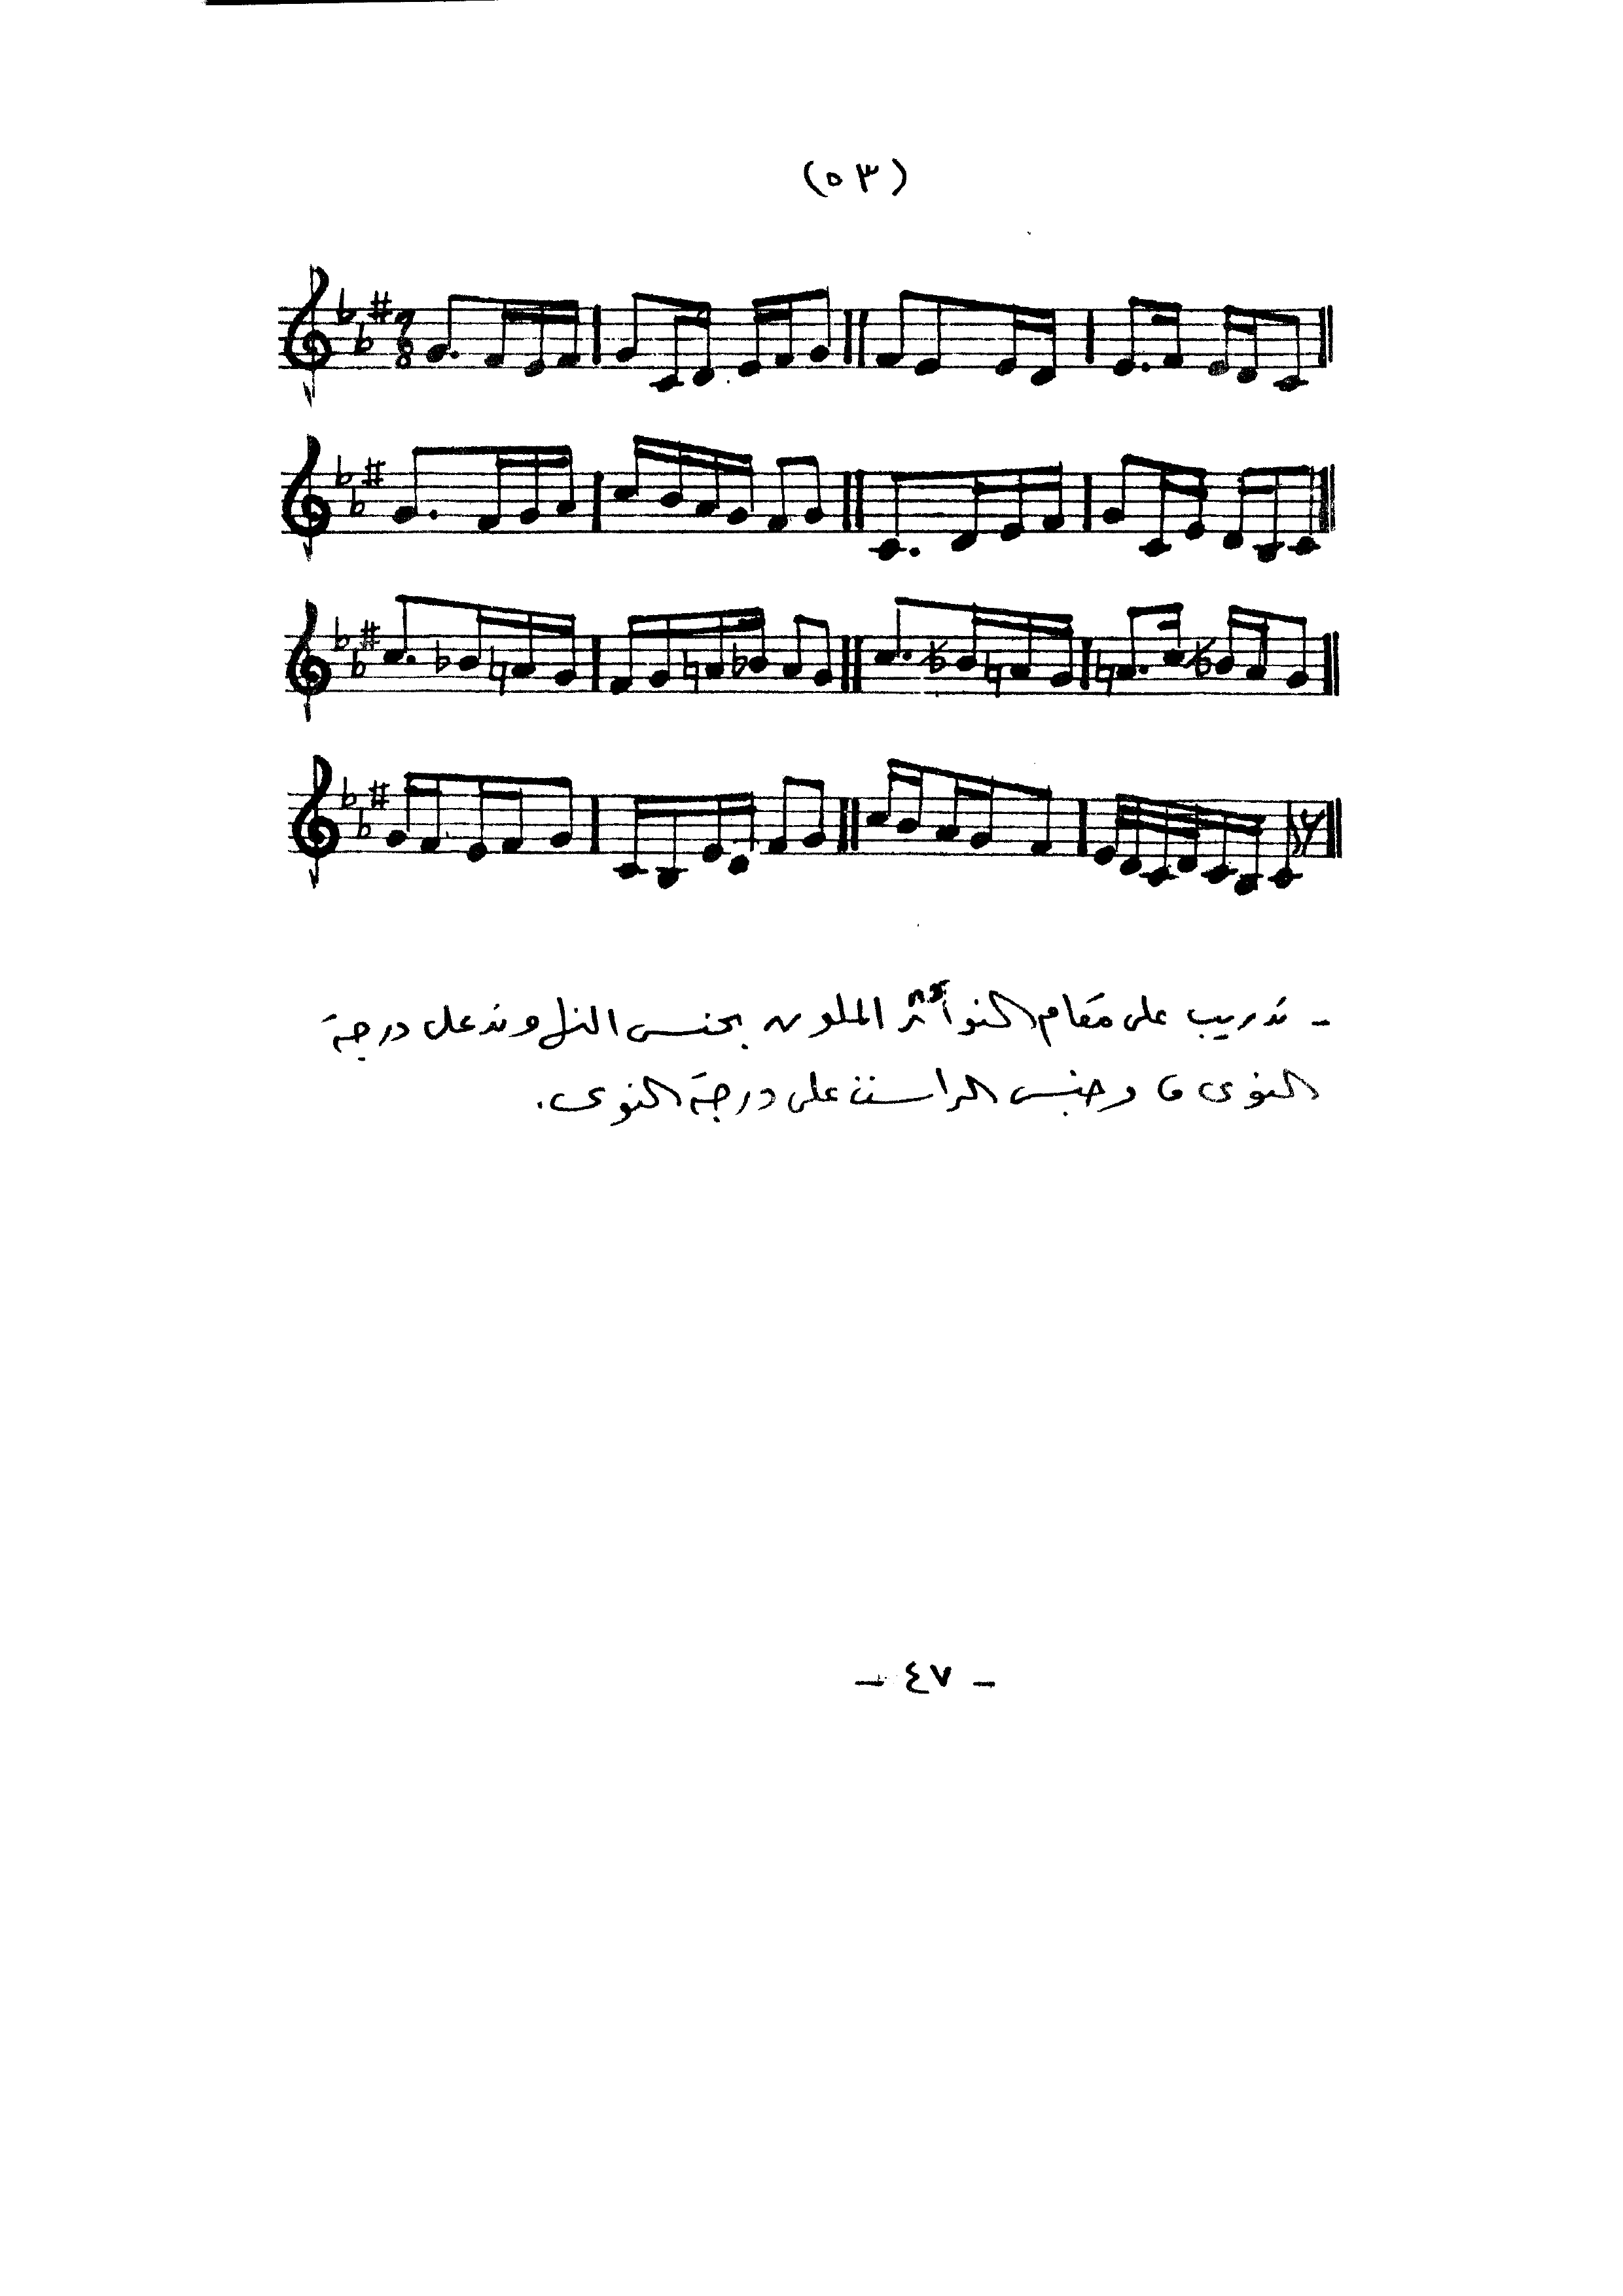 (٥٣)
- تدريب على مقام النوأثر الملون بجنس النهاوند على درجة
النوى ، وجنس الراست على درجة النوى .
- ٤٧ -